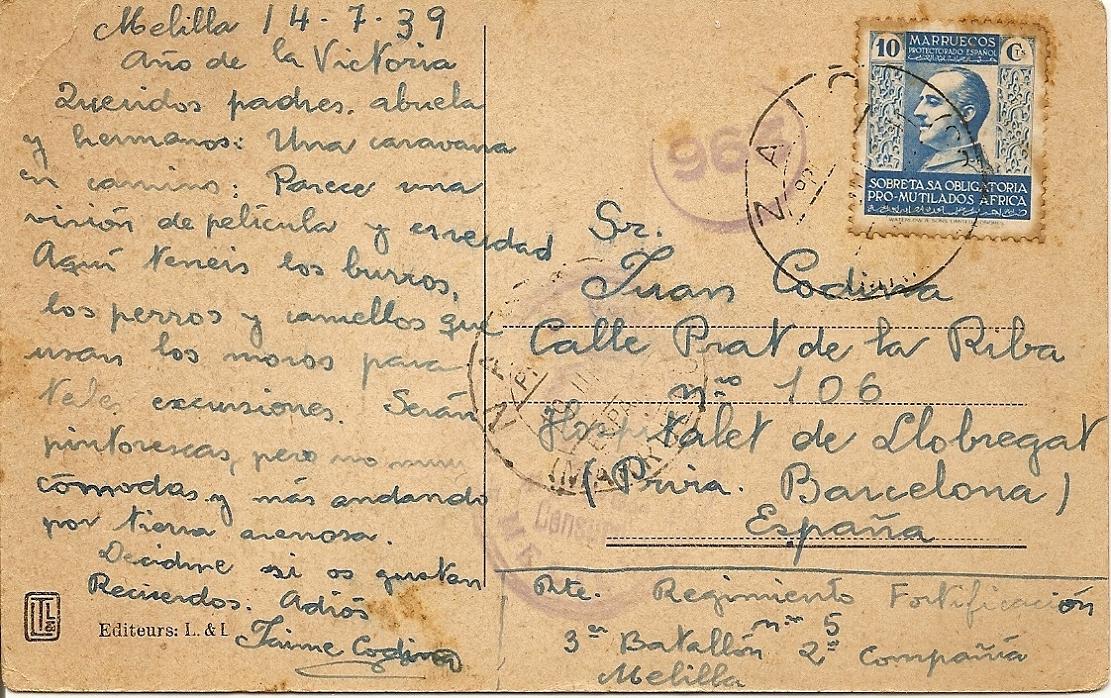 Melilla 14-7-39
Año de la Victoria
Queridos padres, abuela
y hermanos: Una caravana
en camino: Parece una
visión de película y enverdad
Aquí teneis los burros,
los perros y camellos que
usan los moros para
tales excursiones. Serán
pintorescas, pero no muy
cómodas y más andando
por tierra arenosa.
Decidme si os gustan
Recuerdos. Adiós
Jaime Codina
Editeurs: L. & L
965
10 MARRUECOS Cts
PROTECTORADO ESPAÑOL
SOBRETASA OBLIGATORIA
PRO-MUTILADOS AFRICA
Sr.
Juan Codina
Calle Prat de la Riba
nº 106
Hospitalet de Llobregat
(Privia. Barcelona)
España
Rte. Regimiento Fortificación
nº 5
3er Batallón 2ª Compañia
Melilla